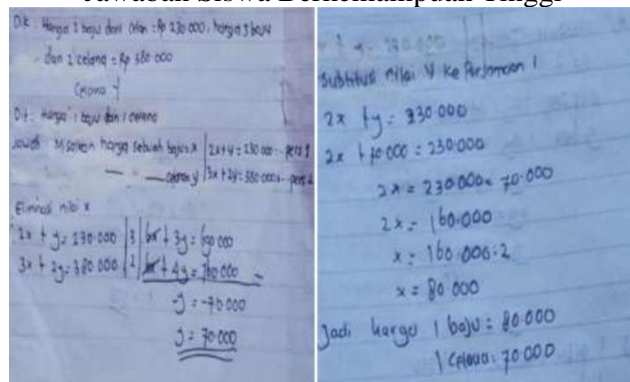 Jawaban Siswa Berkemampuan Tinggi
Dik : Harga 2 baju dan celan = Rp 230 000, harga 3 baju
dan 2 celana = Rp 380 000
Celana
Dit : Harga 1 baju dan 1 celana
Jawab Misalkan harga sebuah baju = x | 2x + y = 230 000 pers 1
celana y | 3x + 2y = 380 000 pers 2
Eliminasi nilai x
2x + y = 230 000 | 3 | 6x + 3y = 690 000
3x + 2y = 380 000 | 2 | 6x + 4y = 760 000 -
-y = -70 000
y = 70 000
Substitusi nilai y ke Persamaan 1
2x + y = 230 000
2x + 70 000 = 230 000
2x = 230 000 - 70 000
2x = 160.000
x = 160 000 : 2
x = 80 000
Jadi harga 1 baju = 80 000
1 celana : 70 000